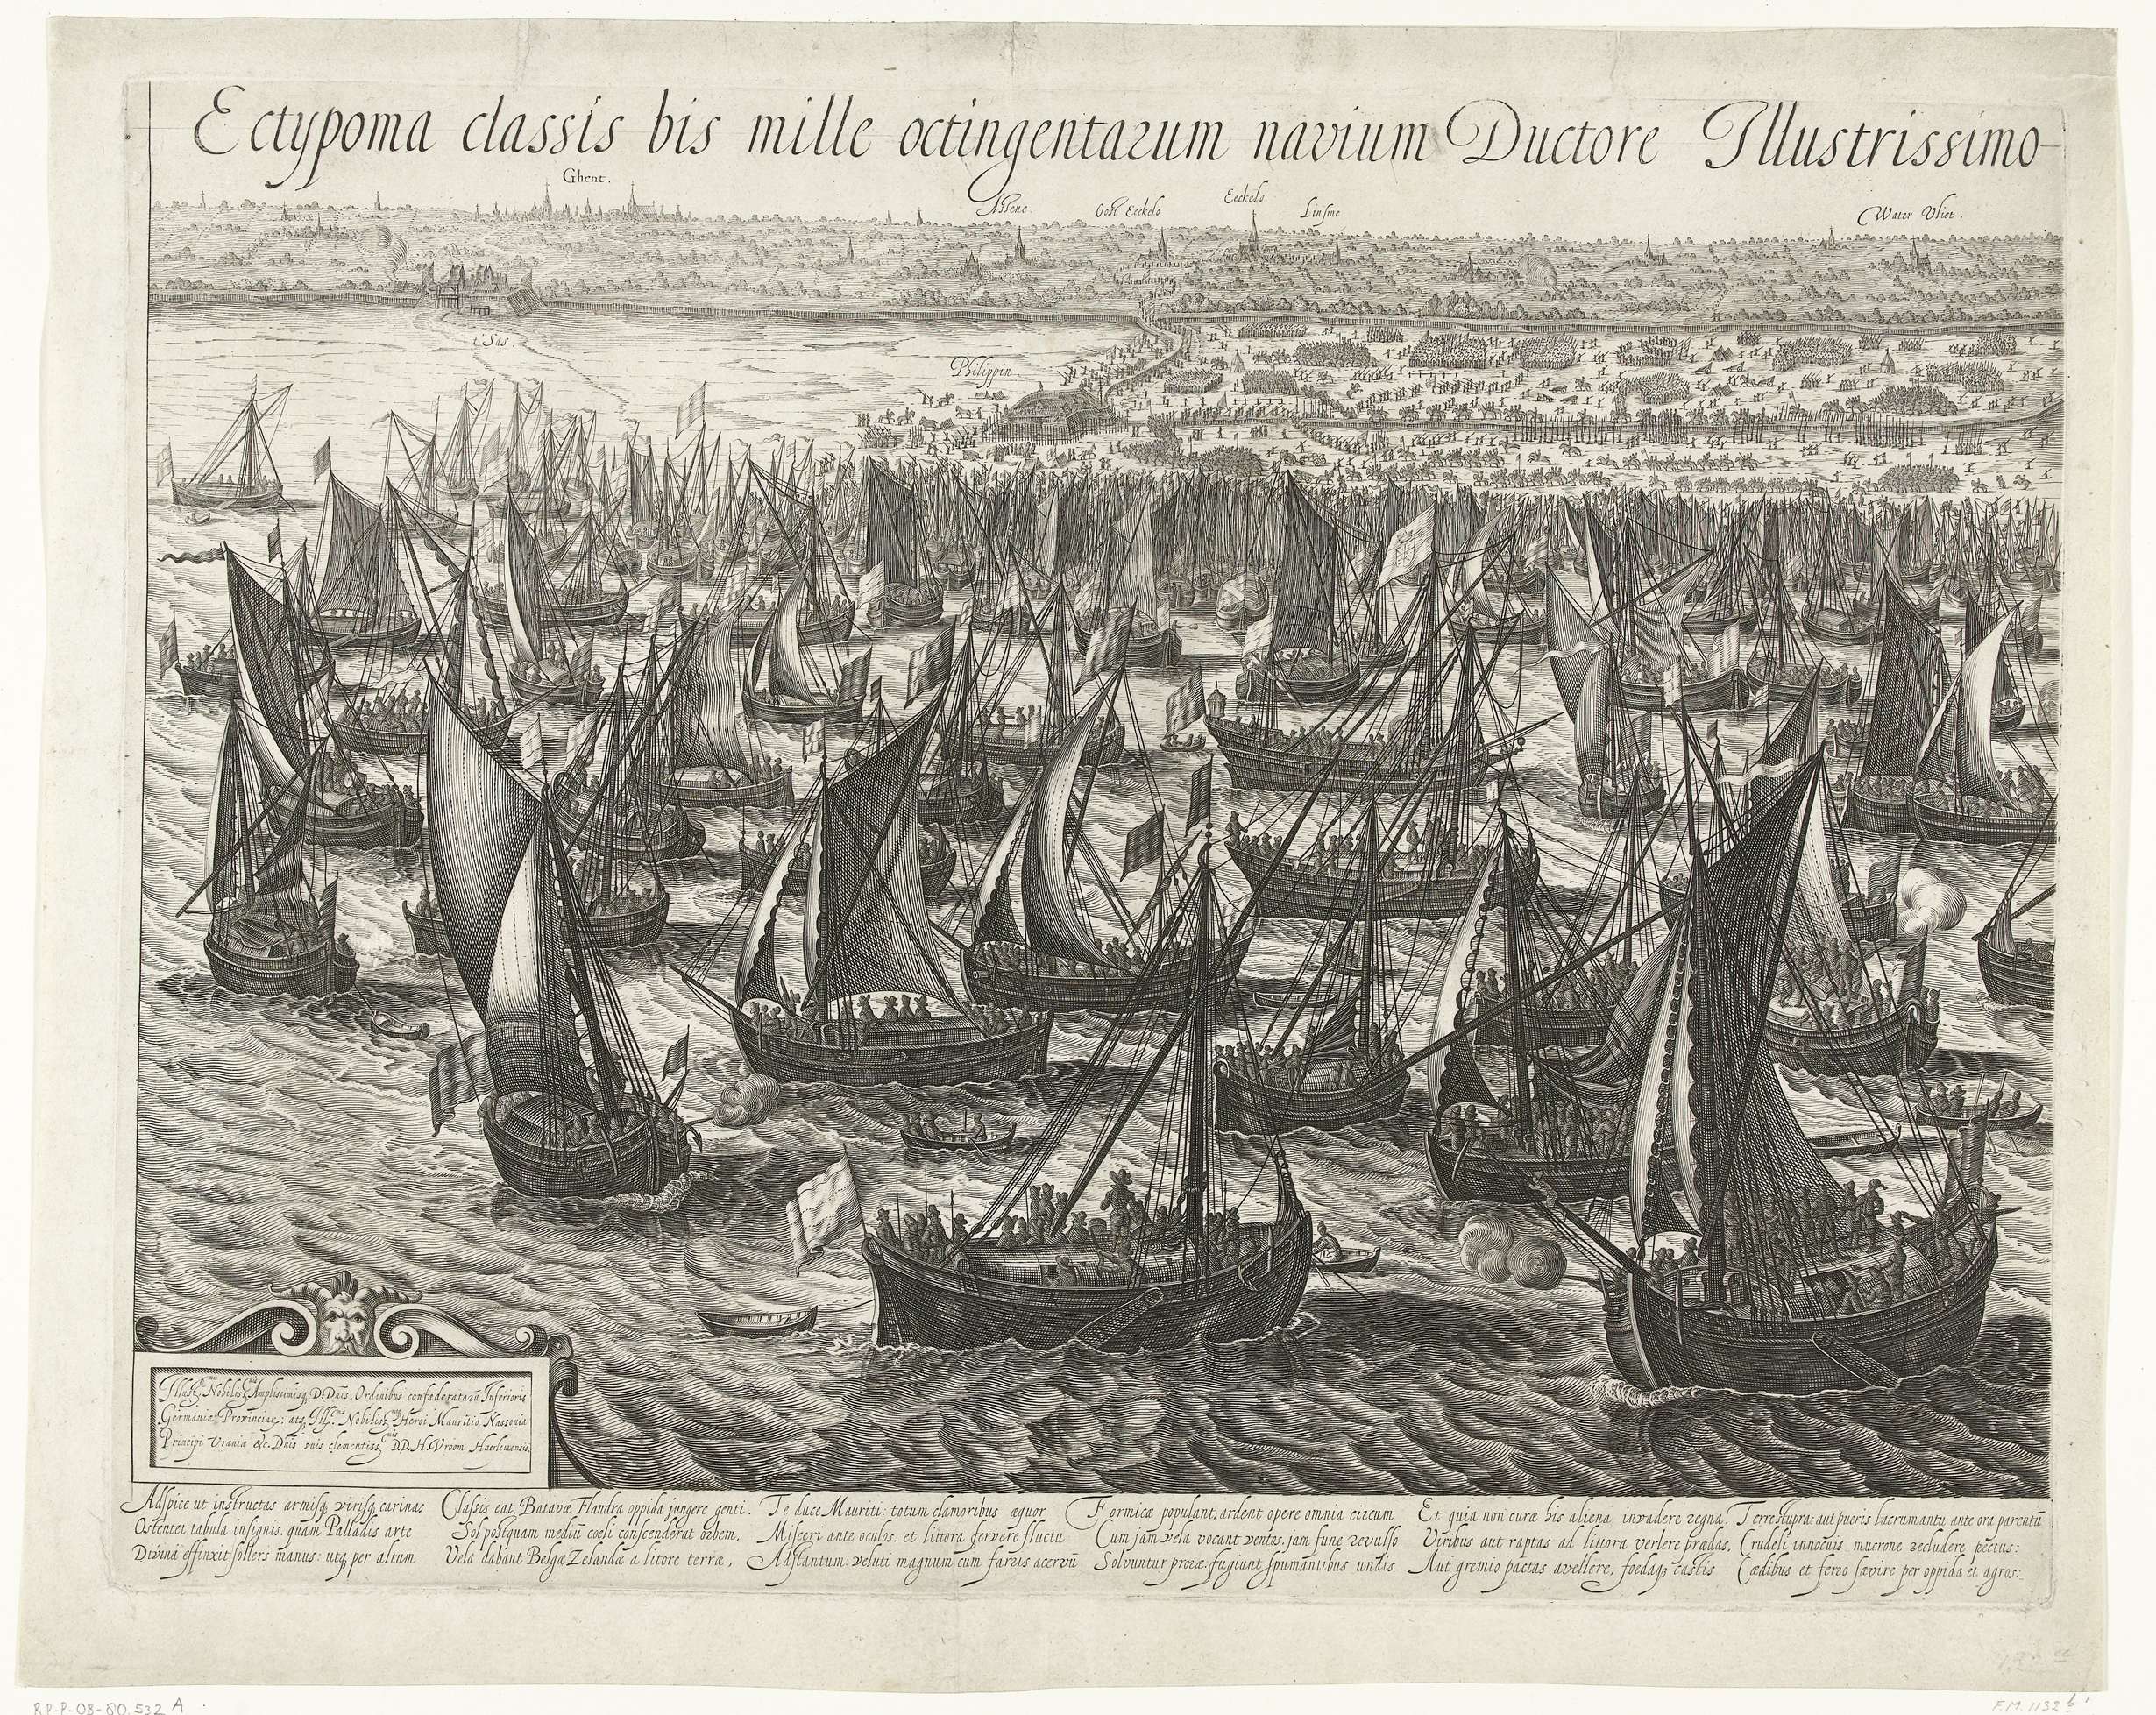 Ectypoma classis bis mille octingentarum navium Ductore Illustrissimo
Ghent.
Assene
Oost Eeckelo
Eeckelo
Linsme
Water Vliet.
t Sas.
Philippin
Illust. Nobiliss. Amplissimisq D. Dnis. Ordinibus confœderatarū Inferioris
Germaniæ Provinciar: atq Ill. Nobiliss. Heroi Mauritio Nassouiæ
Principi Vraniæ &c. Dnis suis clementiss. D.D.H. Vroom Haerlemensis.
Adspice ut instructas armisq, virisq, carinas
Ostentet tabula insignis, quam Palladis arte
Divinā effinxit sollers manus: utq, per altum
Classis eat, Batavæ Flandra oppida jungere genti.
Sol postquam mediū cœli conscenderat orbem,
Vela dabant Belgæ Zelandæ a litore terræ,
Te duce Mauriti: totum clamoribus æquor
Misceri ante oculos, et littora fervere fluctu
Adstantum: veluti magnum cum farris acervū
Formicæ populant; ardent opere omnia circum
Cum jam vela vocant ventos, jam fune revulso
Solvuntur proræ, fugiunt spumantibus undis
Et quia non curæ his aliena invadere regna,
Viribus aut raptas ad littora vertere prædas,
Aut gremio pactas avellere, fœdaq, castis
Terre stupra: aut pueris lacrumantū ante ora parentū
Crudeli innocuis mucrone recludere pectus:
Cædibus et fero sævire per oppida et agros:
RP-P-OB-80.532 A
F.M. 1132 b